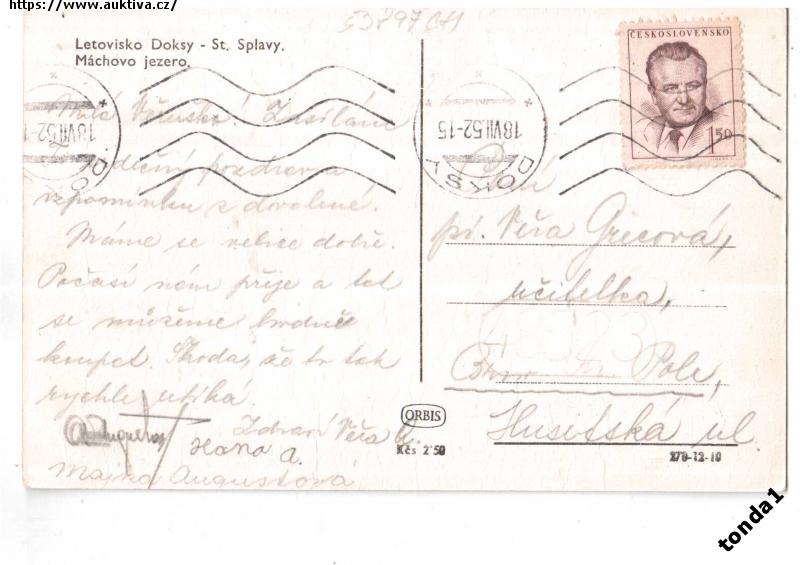 https://www.auktiva.cz/
53897CH
Letovisko Doksy - St. Splavy.
Máchovo jezero.
ČESKOSLOVENSKO
1.50
18.VII.52-15
DOKSY
18.VII.52
DO
Milá Věrusko! Zasíláme
srdečný pozdrav a
vzpomínku z dovolené.
Máme se velice dobře.
Počasí nám přeje a tak
se můžeme hodně
koupat. Škoda, že to tak
rychle utíká.
Zdraví Věra
Hana A.
Majka Augustová
pí. Věra Grecová,
učitelka,
Brno Pole,
Husitská ul
ORBIS
Kčs 2'50
279-12-10
tonda1